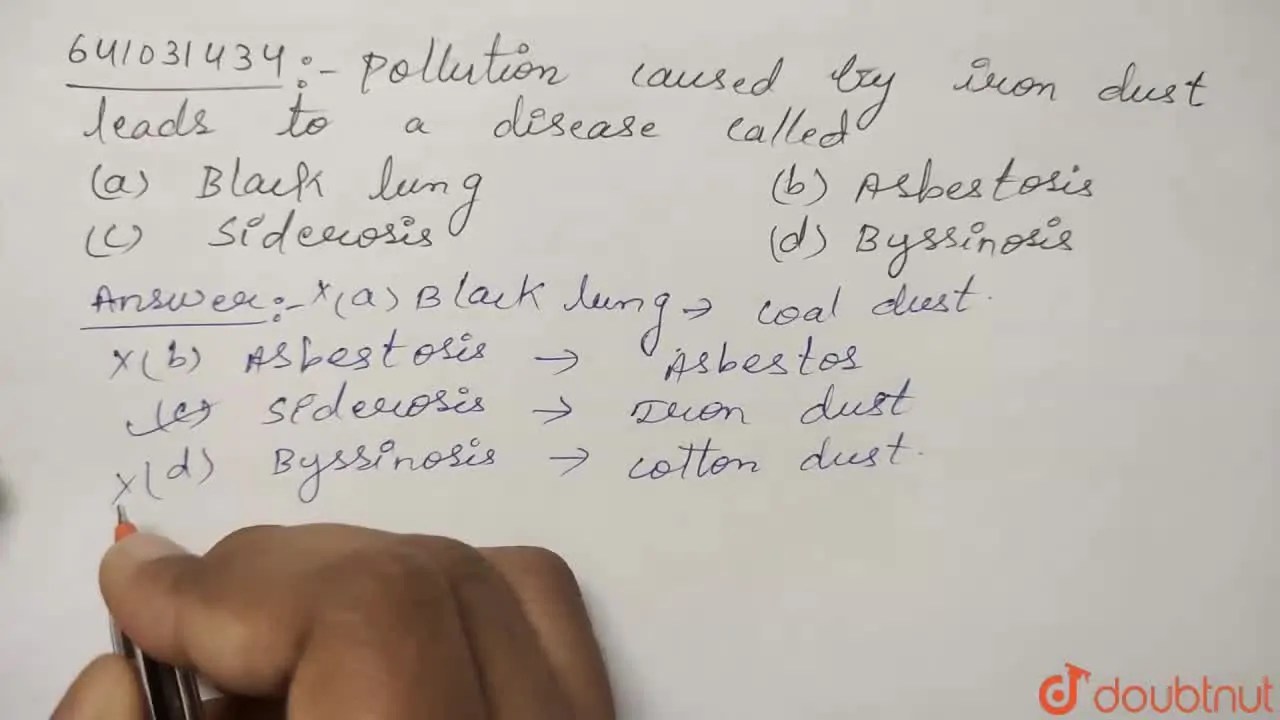 641031434:- Pollution caused by iron dust
leads to a disease called
(a) Black lung (b) Asbestosis
(c) Siderosis (d) Byssinosis
Answer:- x(a) Black lung → coal dust.
x(b) Asbestosis → Asbestos
✓(c) Siderosis → Iron dust
x(d) Byssinosis → cotton dust.
doubtnut